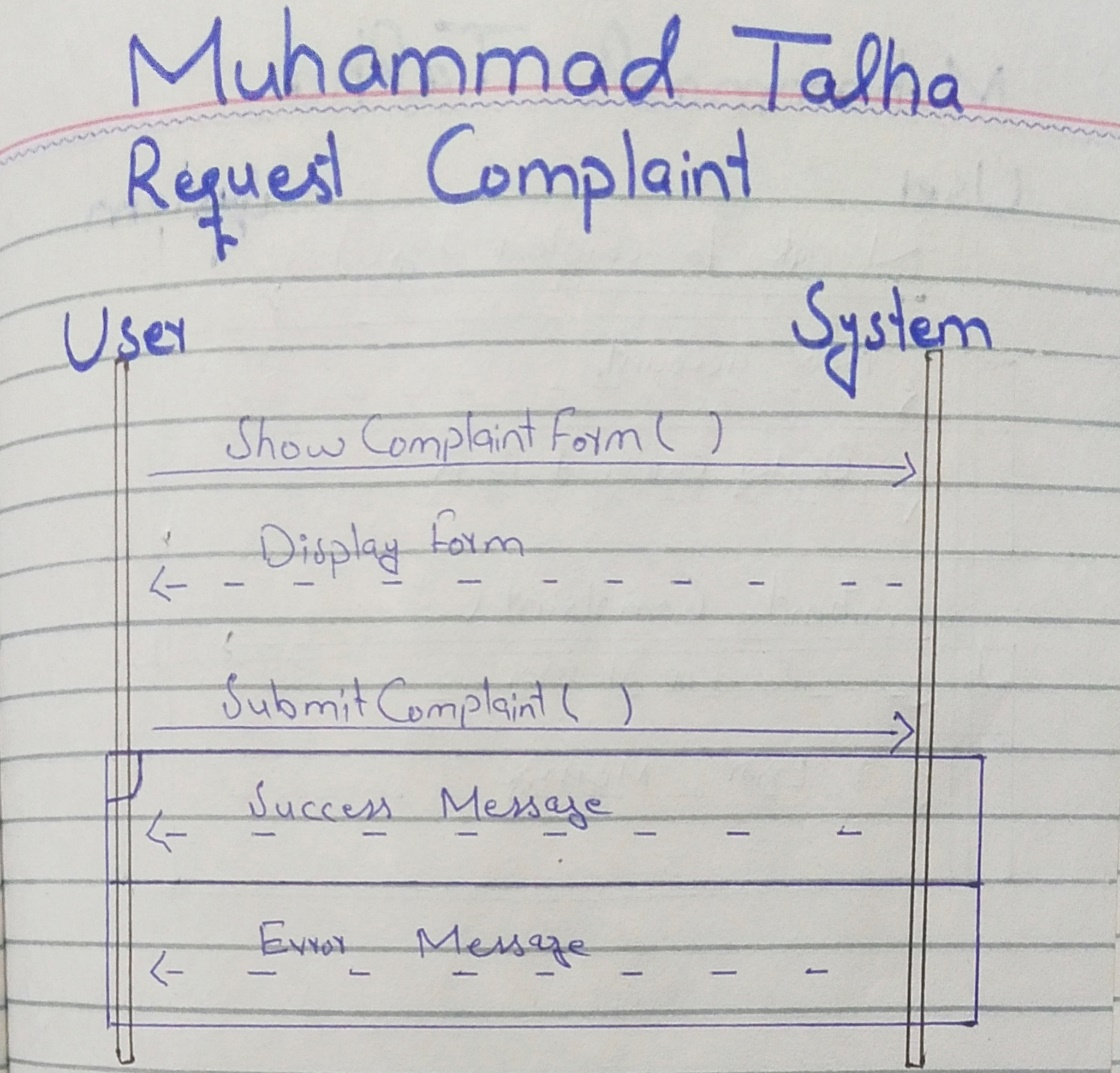 Muhammad Talha
Request Complaint
User System
Show Complaint Form ( )
Display Form
Submit Complaint ( )
Success Message
Error Message